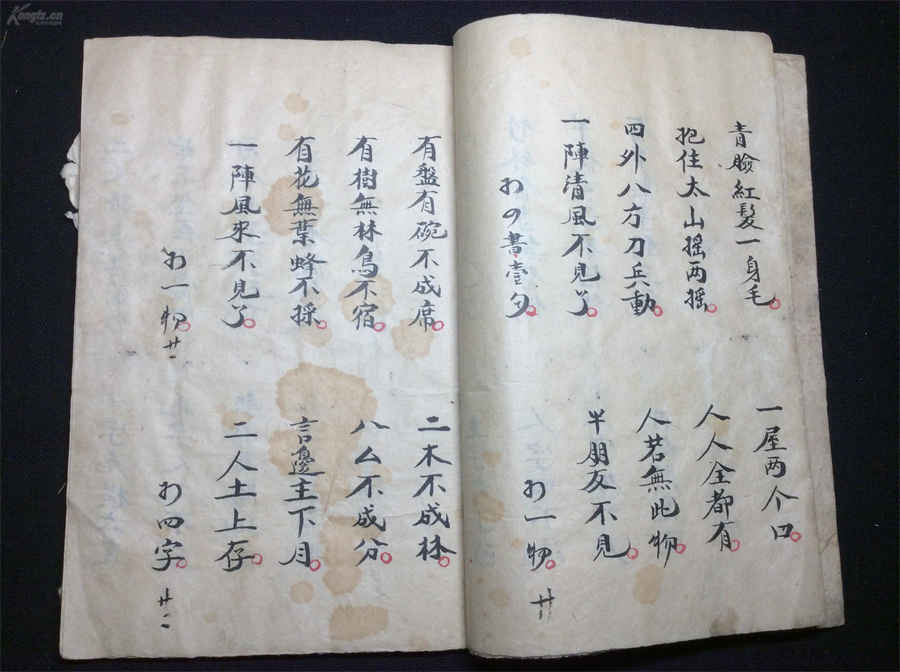 青臉紅髮一身毛。
抱住太山摇两摇。
四外八方刀兵動。
一陣清風不見了。
打の書壹
一屋两个口。
人人全都有。
人若無此物。
半朋友不見。
打一物。 廿
有盤有碗不成席。
有樹無林鳥不宿。
有花無葉蜂不採。
一陣風來不見了。
打一物。 廿一
二木不成林。
八厶不成分。
言邊主下月。
二人土上存。
打四字。 廿二
Kongfz.cn